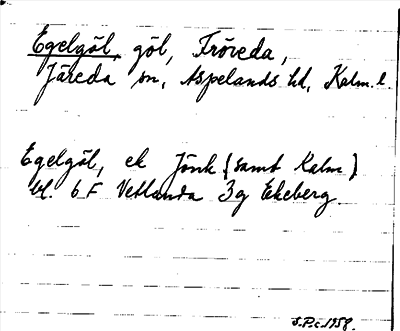 Egelgöl, göl, Fröreda,
Järeda sn, Aspelands hd, Kalm. l.
Egelgöl, ek Jönk (samt Kalm)
bl. 6 F Vetlanda 3 g Ekeberg.
S.P.c. 1958.